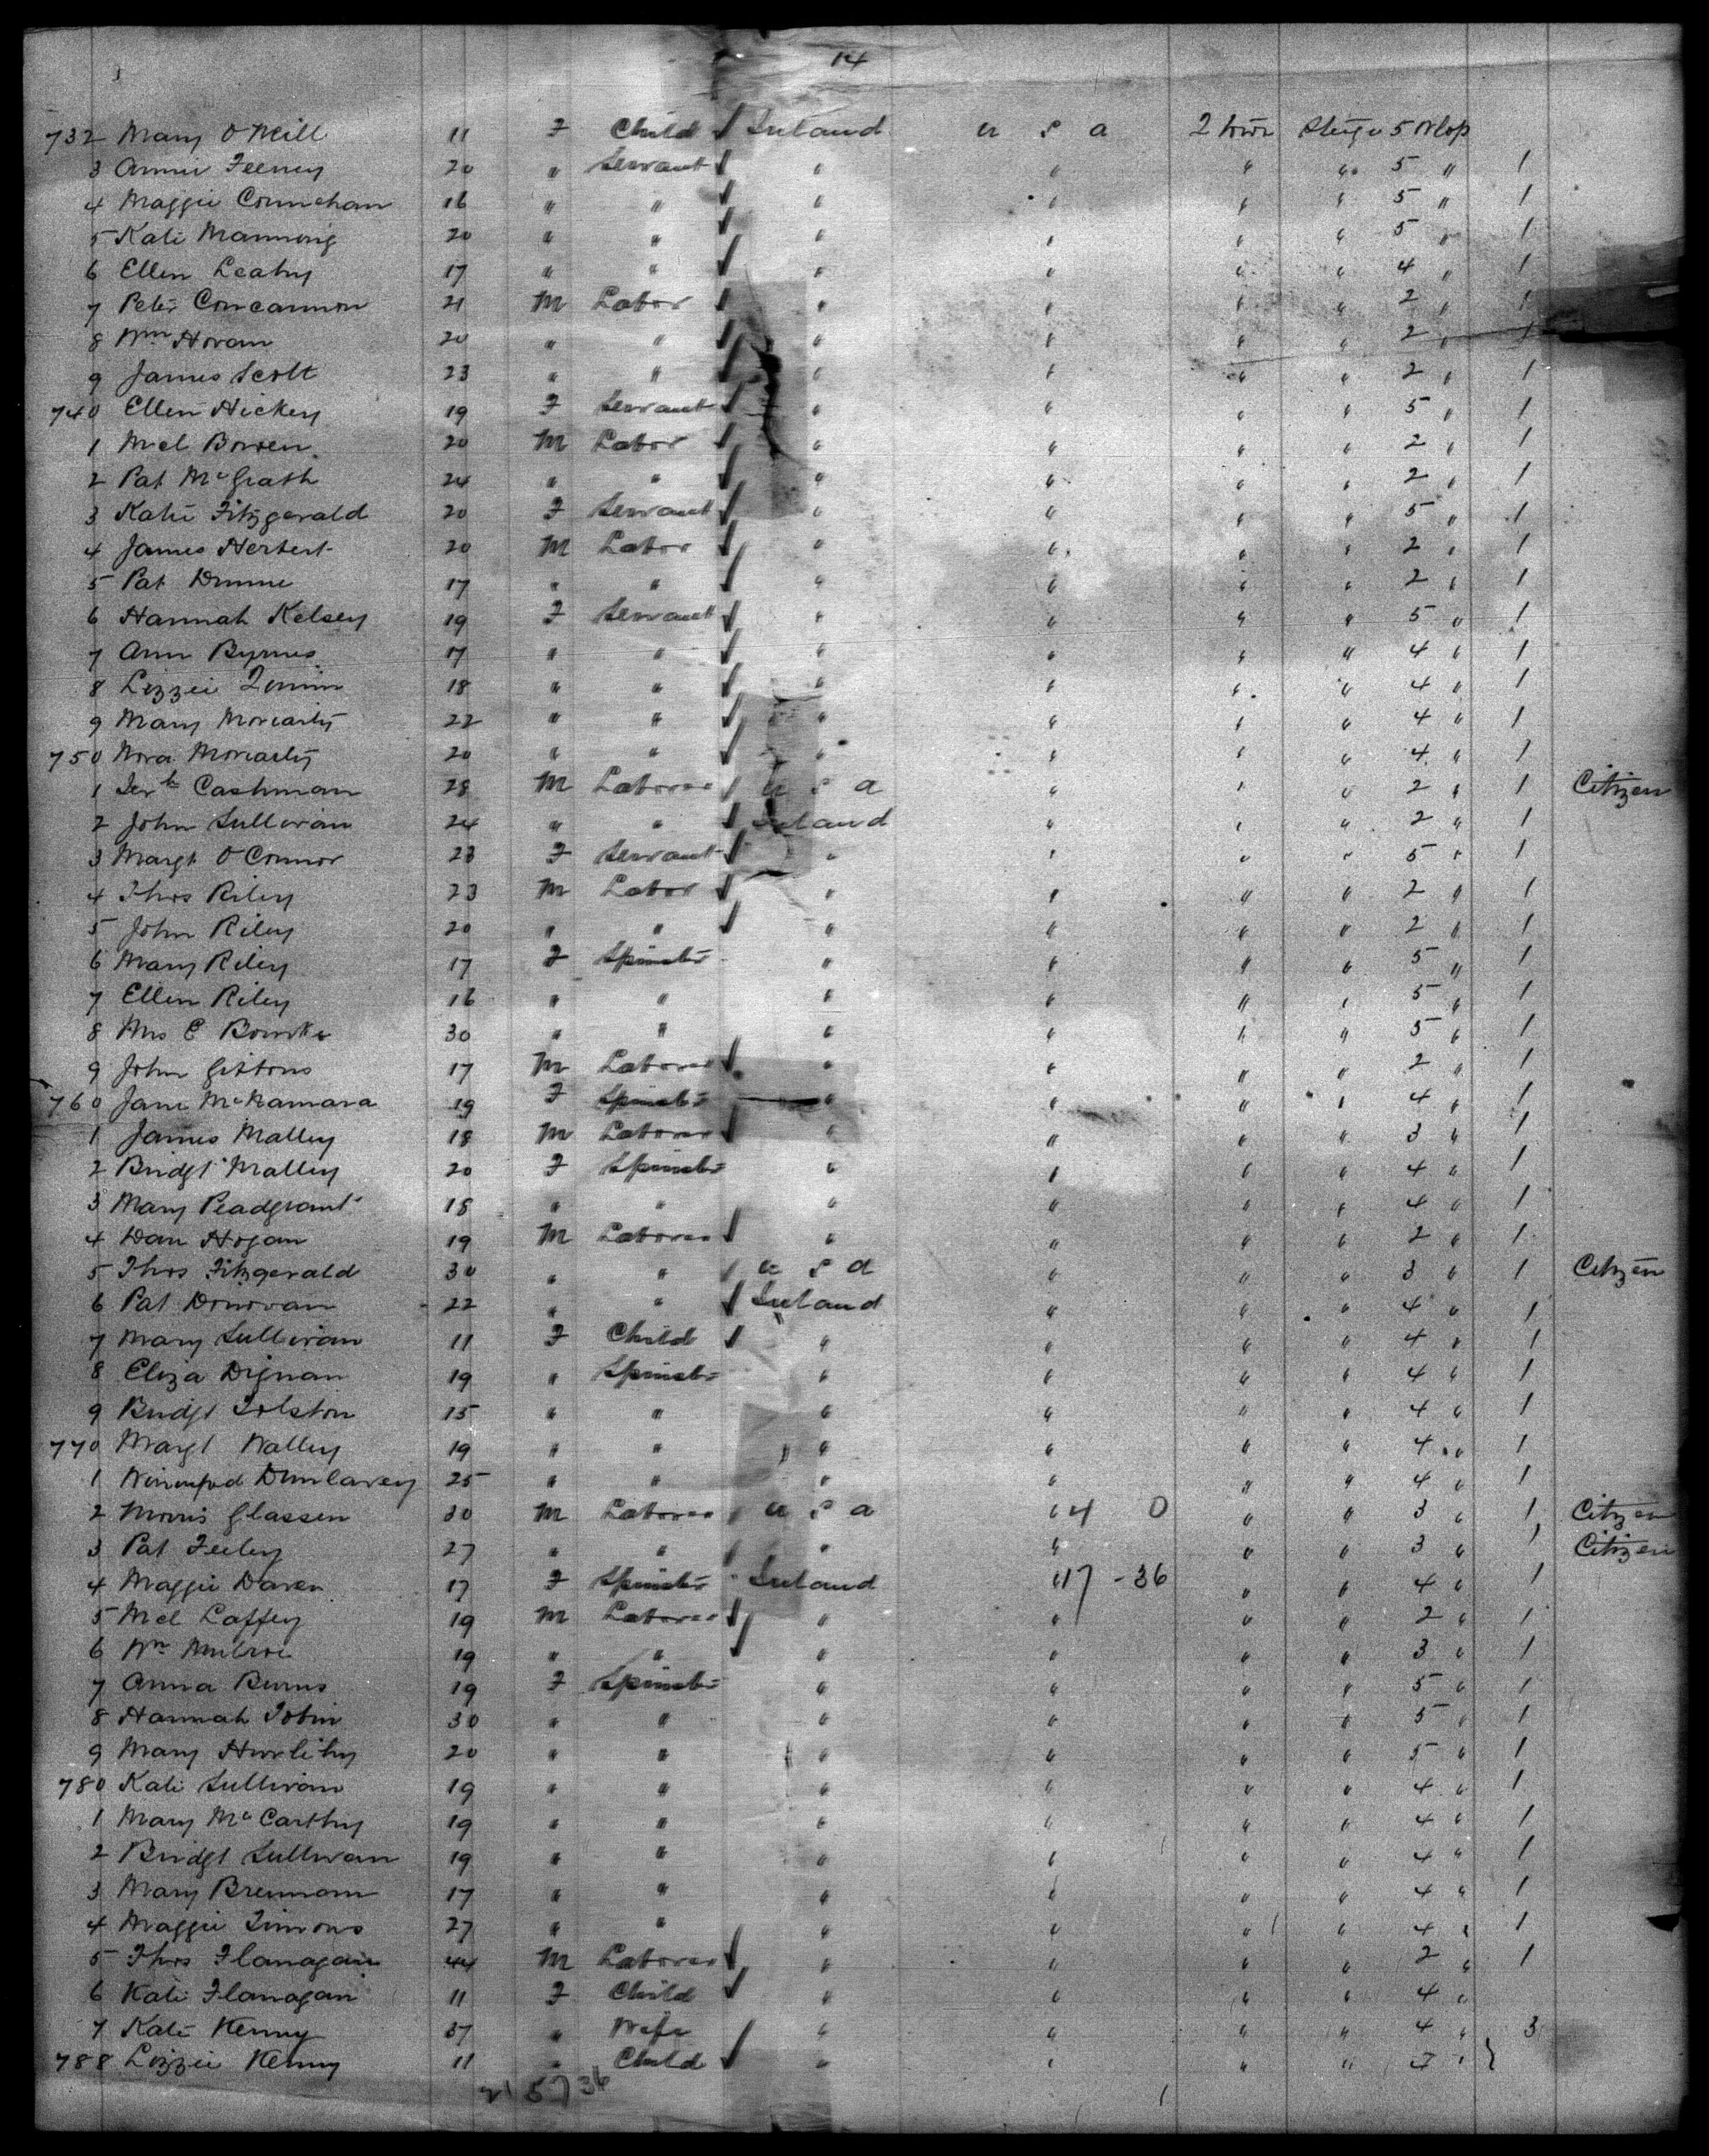 14
732 Mary O'Neill 11 F Child Ireland U S A 2 Steige 5
3 Annie Feeney 20 " Servant " " " " 5 " 1
4 Maggie 16 " " " " " " 5 " 1
5 Kate Manning 20 " " " " " " 5 " 1
6 Ellen Leahy 17 " " " " " " 4 " 1
7 Peter Concannon 21 M Labor " " " " 2 " 1
8 Wm Horan 20 " " " " " " 2 " 1
9 James Scott 23 " " " " " " 2 " 1
740 Ellen Hickey 19 F Servant " " " " 5 " 1
1 Mcl Bowen 20 M Labor " " " " 2 " 1
2 Pat McGrath 24 " " " " " " 2 " 1
3 Katie Fitzgerald 20 F Servant " " " " 5 " 1
4 James Herbert 20 M Labor " " " " 2 " 1
5 Pat Dunne 17 " " " " " " 2 " 1
6 Hannah Kelsey 19 F Servant " " " " 5 " 1
7 Ann Byrnes 17 " " " " " " 4 " 1
8 Lizzie 18 " " " " " " 4 " 1
9 Mary Moriarty 22 " " " " " " 4 " 1
750 Nora Moriarty 20 " " " " " " 4 " 1
1 Cashman 28 M Laborer U S A " " " 2 " 1 Citizen
2 John Sullivan 24 " " Ireland " " " 2 " 1
3 Margt O'Connor 23 F Servant " " " " 5 " 1
4 Thos Riley 23 M Labor " " " " 2 " 1
5 John Riley 20 " " " " " " 2 " 1
6 Mary Riley 17 F Spinster " " " " 5 " 1
7 Ellen Riley 16 " " " " " " 5 " 1
8 Mrs C Bourke 30 " " " " " " 5 " 1
9 John Gibbons 17 M Laborer " " " " 2 " 1
760 Jane McNamara 19 F Spinster " " " " 4 " 1
1 James Malley 18 M Laborer " " " " 3 " 1
2 Bridgt Malley 20 F Spinster " " " " 4 " 1
3 Mary 18 " " " " " " 4 " 1
4 Dan Hogan 19 M Laborer " " " " 2 " 1
5 Thos Fitzgerald 30 " " U S A " " " 3 " 1 Citizen
6 Pat Donovan 22 " " Ireland " " " 4 " 1
7 Mary Sullivan 11 F Child " " " " 4 " 1
8 Eliza Dignan 19 " Spinster " " " " 4 " 1
9 Bridgt Tolston 15 " " " " " " 4 " 1
770 Margt Walley 19 " " " " " " 4 " 1
1 Dunlavey 25 " " " " " " 4 " 1
2 Morris Glassen 30 M Laborer U S A " 4 0 " " 3 " 1 Citizen
3 Pat Feeley 27 " " " " " " 3 " 1 Citizen
4 Maggie Daren 17 F Spinster Ireland " 17 - 36 " " 4 " 1
5 Mcl Laffey 19 M Laborer " " " " 2 " 1
6 Wm 19 " " " " " " 3 " 1
7 Anna Burns 19 F Spinster " " " " 5 " 1
8 Hannah Tobin 30 " " " " " " 5 " 1
9 Mary Hurlihy 20 " " " " " " 5 " 1
780 Kate Sullivan 19 " " " " " " 4 " 1
1 Mary McCarthy 19 " " " " " " 4 " 1
2 Bridgt Sullivan 19 " " " " " " 4 " 1
3 Mary Brennan 17 " " " " " " 4 " 1
4 Maggie Timons 27 " " " " " " 4 " 1
5 Thos Flanagan 44 M Laborer " " " " 2 " 1
6 Kate Flanagan 11 F Child " " " " 4 "
7 Kate Kenny 37 " Wife " " " " 4 " 3
788 Lizzie Kenny 11 " Child " " " " "
21 57 36